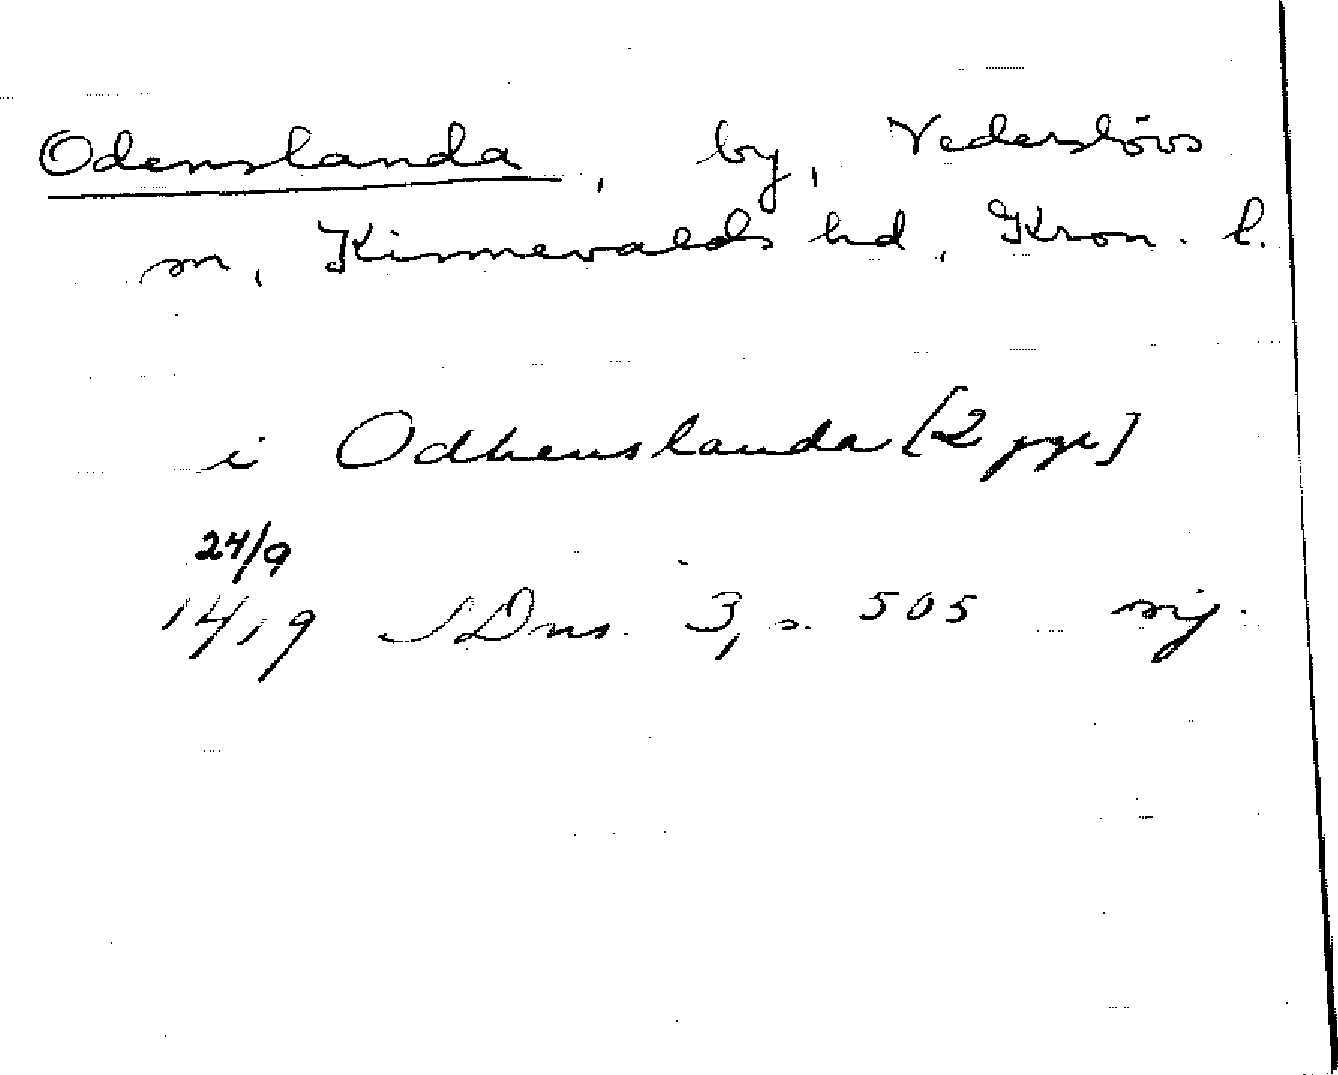 Odenslanda, by, Vederslövs
sn, Kinnevalds hd, Kron. l.
i Odhenslanda [2 ggr]
24/9
1419 SDns. 3, s. 505